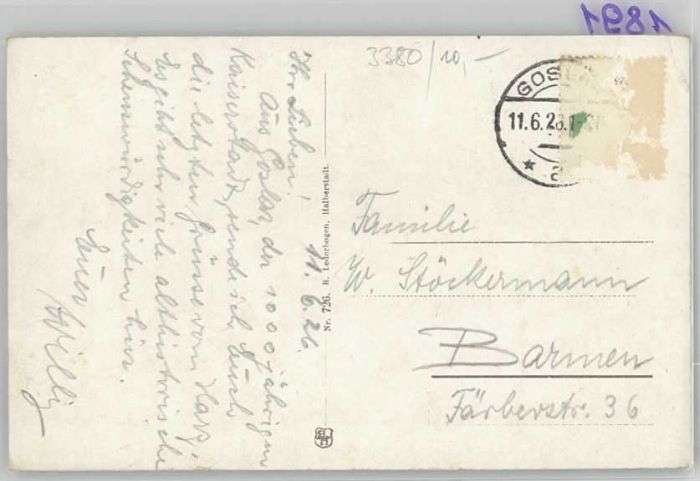 1891
3380/10,-
GOSL
11.6.26.1-
* a
11.6.26.
Ihr Lieben!
Aus Goslar, der 1000 jährigen
Kaiserstadt, sende ich Euch
die letzten Grüsse vom Harz,
Es gibt sehr viele althistorische
Sehenswürdigkeiten hier.
Euer
Willy
Nr. 726. R. Lederbogen, Halberstadt.
Familie
W. Stöckermann
Barmen
Färberstr. 36